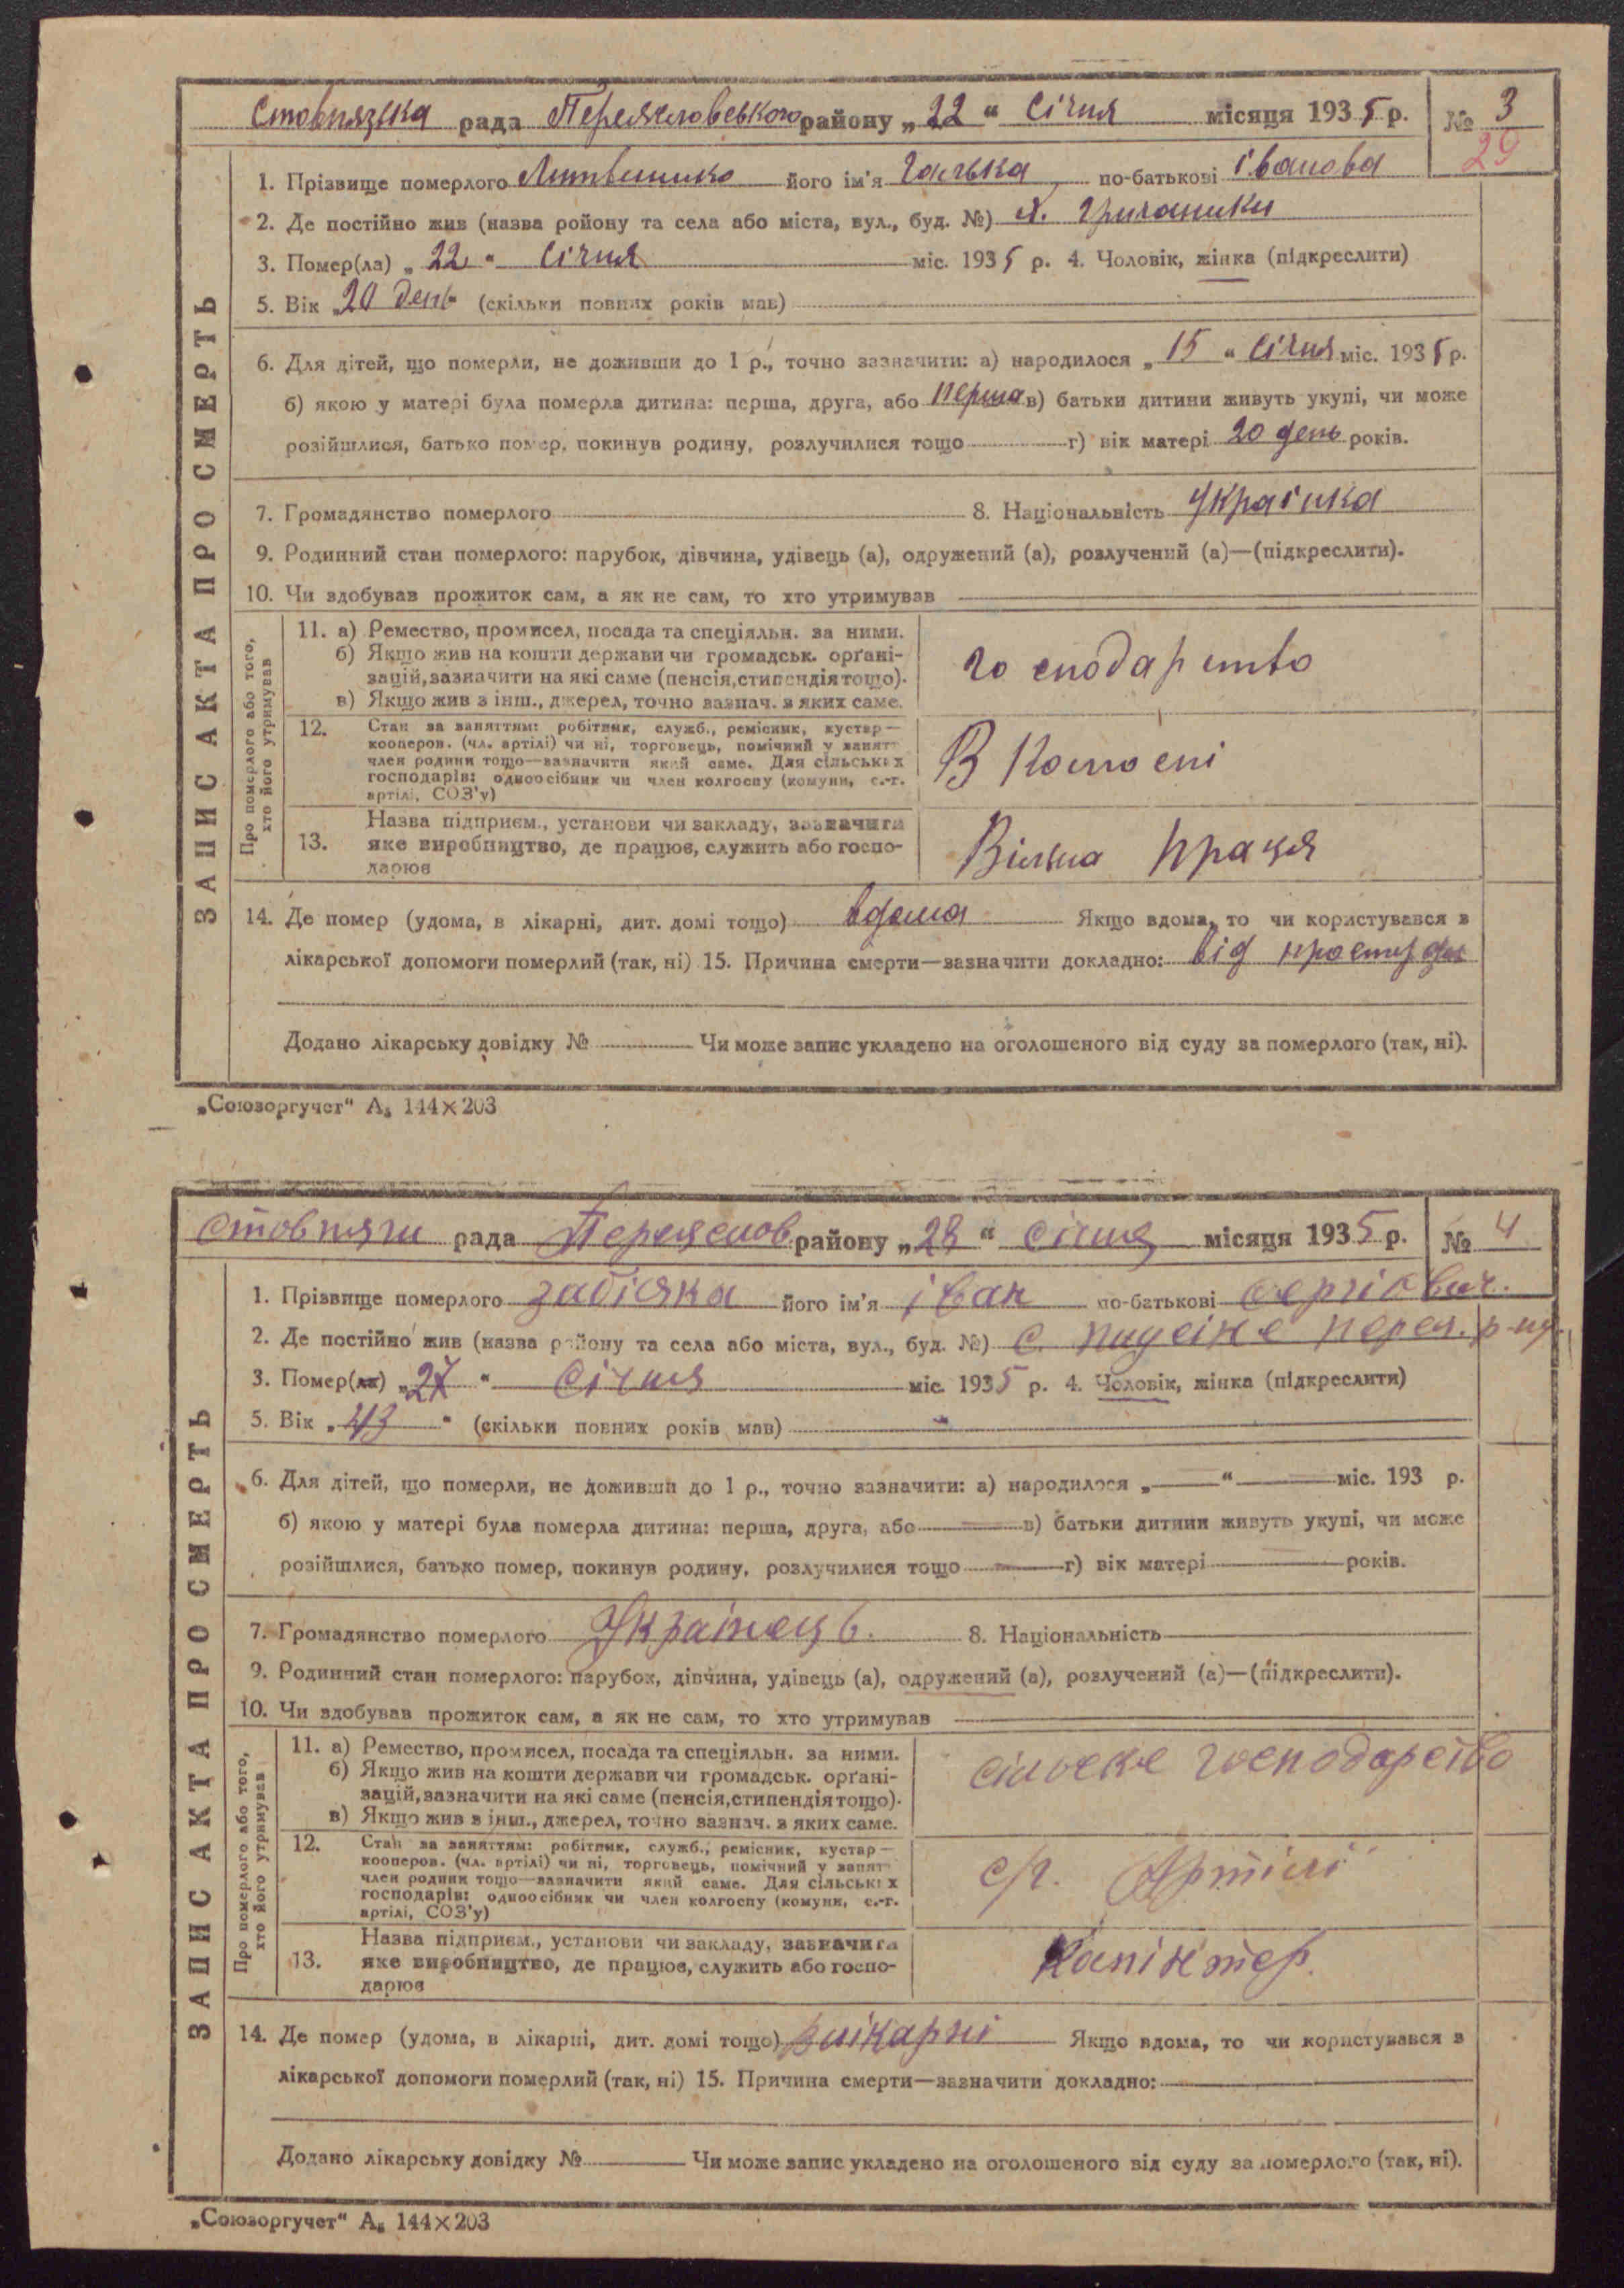 Стовпязька рада Переяславського району „22“ Січня місяця 1935 р. № 3
29
ЗАПИС АКТА ПРО СМЕРТЬ
1. Прізвище померлого Литвиненко його ім'я Галька по-батькові Іванова
2. Де постійно жив (назва ройону та села або міста, вул., буд. №) х. Гричаники
3. Помер(ла) „22“ Січня міс. 1935 р. 4. Чоловік, жінка (підкреслити)
5. Вік „20 день“ (скільки повних років мав)
6. Для дітей, що померли, не доживши до 1 р., точно зазначити: а) народилося „15“ Січня міс. 1935 р.
б) якою у матері була померла дитина: перша, друга, або перша в) батьки дитини живуть укупі, чи може
розійшлися, батько помер, покинув родину, розлучилися тощо г) вік матері 20 день років.
7. Громадянство померлого 8. Національність Українка
9. Родинний стан померлого: парубок, дівчина, удівець (а), одружений (а), розлучений (а)—(підкреслити).
10. Чи здобував прожиток сам, а як не сам, то хто утримував
Про померлого або того, хто його утримував
11. а) Ремество, промисел, посада та спеціяльн. за ними.
б) Якщо жив на кошти держави чи громадськ. орґані-
зацій, зазначити на які саме (пенсія, стипендія тощо).
в) Якщо жив з інш., джерел, точно зазнач. з яких саме.
господарство
12. Стан за заняттям: робітник, служб., ремісник, кустар—
кооперов. (чл. артілі) чи ні, торговець, помічний у занятт
член родини тощо—зазначити який саме. Для сільських
господарів: одноосібник чи член колгоспу (комуни, с.-г.
артілі, СОЗ'у)
В Колгоспі
13. Назва підприєм., установи чи закладу, зазначити
яке виробництво, де працює, служить або госпо-
дарює
Вільна праця
14. Де помер (удома, в лікарні, дит. домі тощо) вдома Якщо вдома, то чи користувався з
лікарської допомоги померлий (так, ні) 15. Причина смерти—зазначити докладно: від простуди
Додано лікарську довідку № Чи може запис укладено на оголошеного від суду за померлого (так, ні).
„Союзоргучет“ А₅ 144×203
Стовпяги рада Переяслов району „28“ Січня місяця 1935 р. № 4
ЗАПИС АКТА ПРО СМЕРТЬ
1. Прізвище померлого Забіяка його ім'я Іван по-батькові Сергієвич.
2. Де постійно жив (назва ройону та села або міста, вул., буд. №) с. переч. р-ну
3. Помер(ла) „27“ Січня міс. 1935 р. 4. Чоловік, жінка (підкреслити)
5. Вік „43“ (скільки повних років мав)
6. Для дітей, що померли, не доживши до 1 р., точно зазначити: а) народилося „ “ міс. 193 р.
б) якою у матері була померла дитина: перша, друга, або в) батьки дитини живуть укупі, чи може
розійшлися, батько помер, покинув родину, розлучилися тощо г) вік матері років.
7. Громадянство померлого Українець. 8. Національність
9. Родинний стан померлого: парубок, дівчина, удівець (а), одружений (а), розлучений (а)—(підкреслити).
10. Чи здобував прожиток сам, а як не сам, то хто утримував
Про померлого або того, хто його утримував
11. а) Ремество, промисел, посада та спеціяльн. за ними.
б) Якщо жив на кошти держави чи громадськ. орґані-
зацій, зазначити на які саме (пенсія, стипендія тощо).
в) Якщо жив з інш., джерел, точно зазнач. з яких саме.
сільське господарство
12. Стан за заняттям: робітник, служб., ремісник, кустар—
кооперов. (чл. артілі) чи ні, торговець, помічний у занят
член родини тощо—зазначити який саме. Для сільських
господарів: одноосібник чи член колгоспу (комуни, с.-г.
артілі, СОЗ'у)
с/г. Артілі
13. Назва підприєм., установи чи закладу, зазначити
яке виробництво, де працює, служить або госпо-
дарює
14. Де помер (удома, в лікарні, дит. домі тощо) в лікарні Якщо вдома, то чи користувався з
лікарської допомоги померлий (так, ні) 15. Причина смерти—зазначити докладно:
Додано лікарську довідку № Чи може запис укладено на оголошеного від суду за померлого (так, ні).
„Союзоргучет“ А₅ 144×203